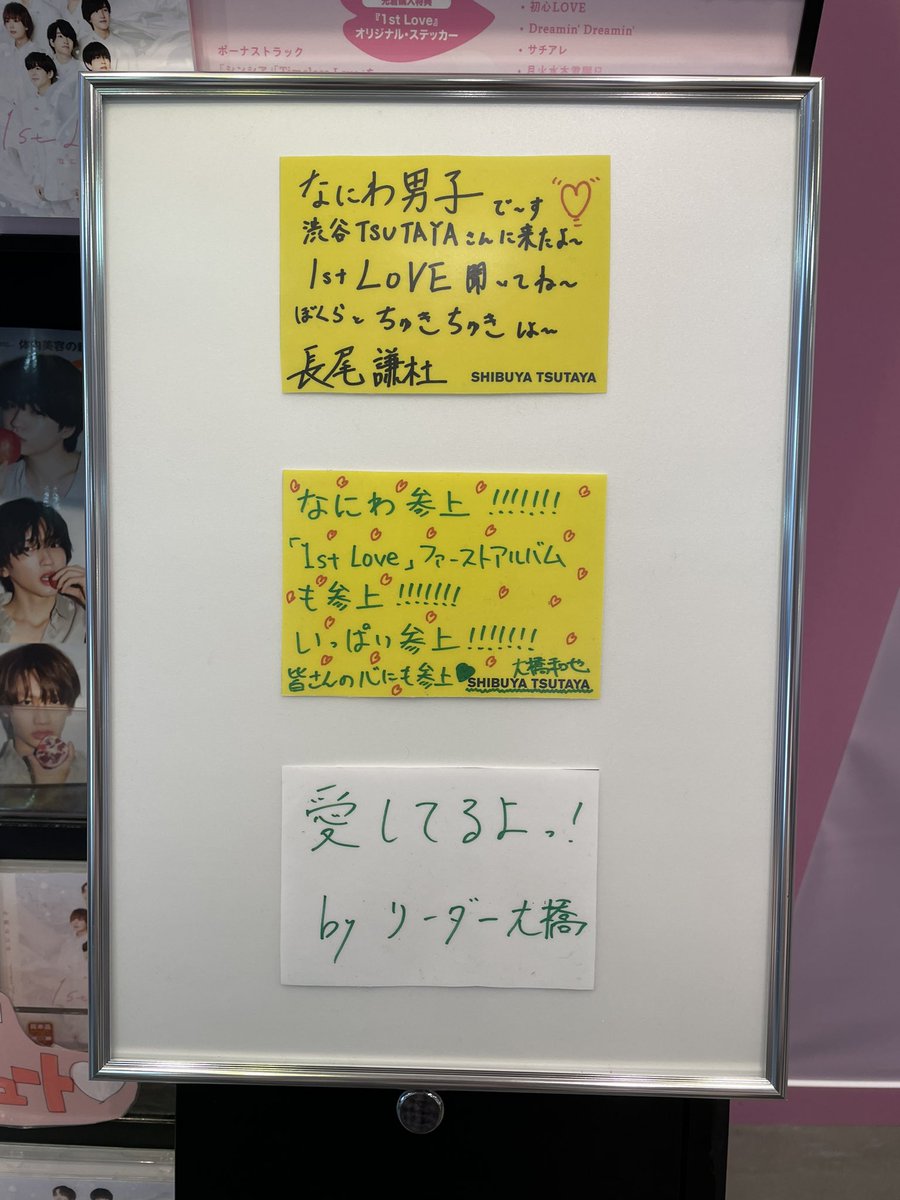 先着購入特典
『1st Love』
オリジナル・ステッカー
ボーナストラック
・初心LOVE
・Dreamin' Dreamin'
・サチアレ
・月火水木金曜日
1st L
体内美容の
なにわ男子 で〜す
渋谷TSUTAYAさんに来たよ〜
1st LOVE 聞いてね〜
ぼくらとちゅきちゅきしよ〜
長尾謙杜
SHIBUYA TSUTAYA
なにわ参上!!!!!!!
「1st Love」ファーストアルバム
も参上!!!!!!!
いっぱい参上!!!!!!!
皆さんの心にも参上 大橋和也
SHIBUYA TSUTAYA
愛してるよっ!
by リーダー大橋
ュート